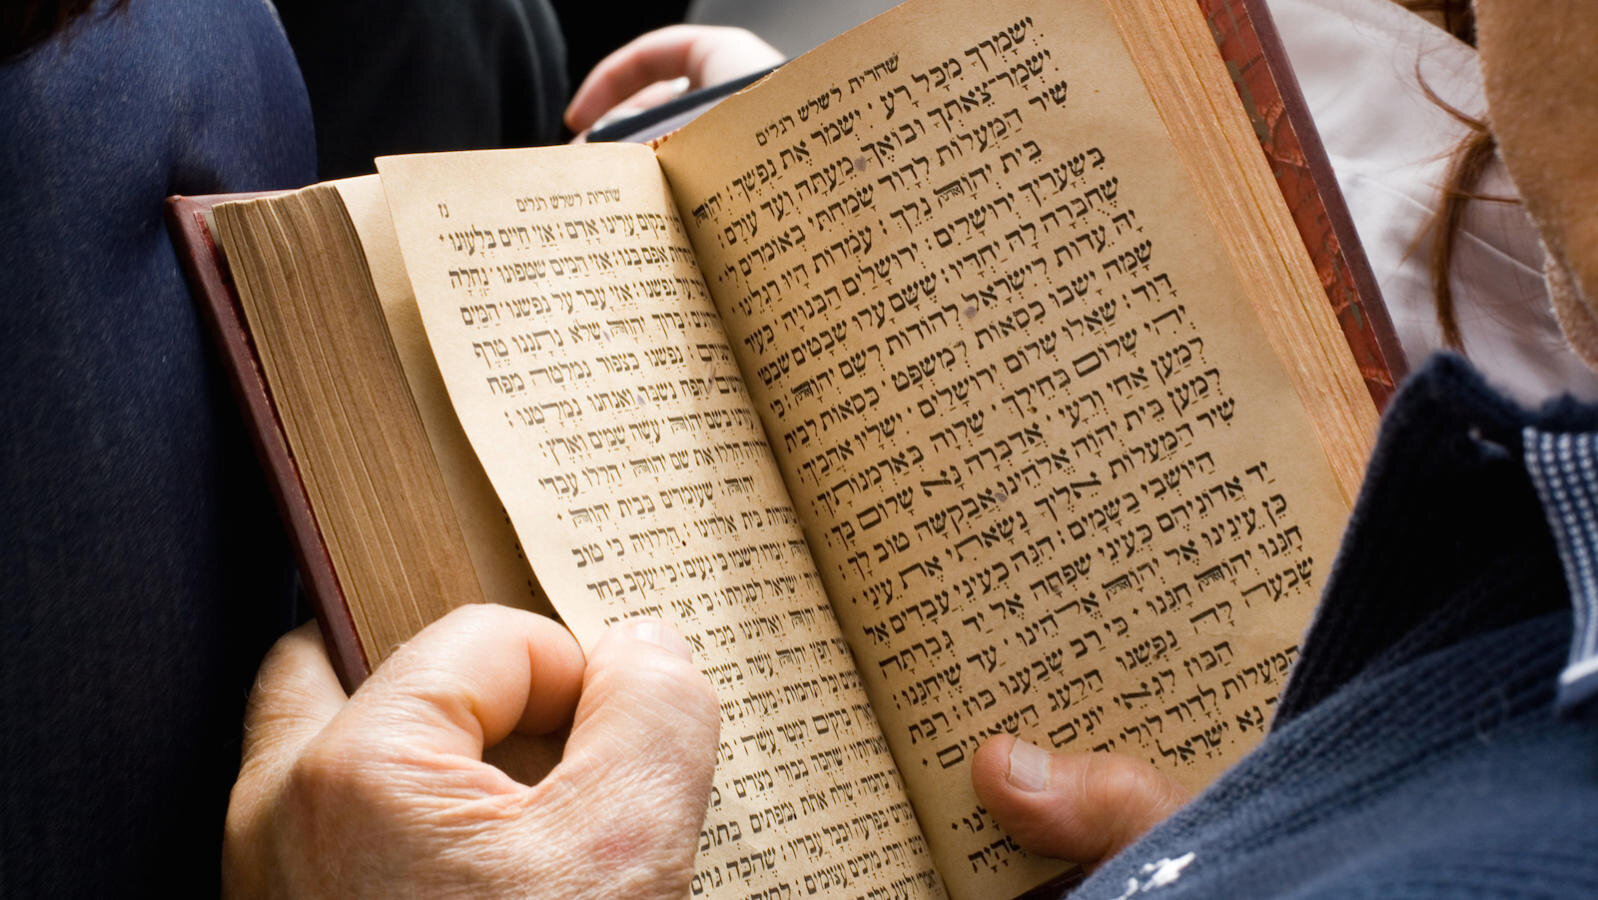 שחרית לשלש רגלים
יִשְׁמָרְךָ מִכָּל רָע · יִשְׁמֹר אֶת נַפְשֶׁךָ: יְהוָה
יִשְׁמָר־צֵאתְךָ וּבוֹאֶךָ · מֵעַתָּה וְעַד עוֹלָם:
שִׁיר הַמַּעֲלוֹת לְדָוִד שָׂמַחְתִּי בְּאוֹמְרִים לִי ·
בֵּית יְהוָה נֵלֵךְ: עֹמְדוֹת הָיוּ רַגְלֵינוּ ·
בִּשְׁעָרַיִךְ יְרוּשָׁלָיִם: יְרוּשָׁלַיִם הַבְּנוּיָה כְּעִיר
שֶׁחֻבְּרָה לָּהּ יַחְדָּיו: שֶׁשָּׁם עָלוּ שְׁבָטִים שִׁבְטֵי
יָהּ עֵדוּת לְיִשְׂרָאֵל לְהוֹדוֹת לְשֵׁם יְהוָה: כִּי
שָׁמָּה יָשְׁבוּ כִסְאוֹת לְמִשְׁפָּט · כִּסְאוֹת לְבֵית
דָּוִד: שַׁאֲלוּ שְׁלוֹם יְרוּשָׁלָיִם · יִשְׁלָיוּ אֹהֲבָיִךְ:
יְהִי שָׁלוֹם בְּחֵילֵךְ · שַׁלְוָה בְּאַרְמְנוֹתָיִךְ:
לְמַעַן אַחַי וְרֵעָי · אֲדַבְּרָה נָּא שָׁלוֹם בָּךְ:
לְמַעַן בֵּית יְהוָה אֱלֹהֵינוּ אֲבַקְשָׁה טוֹב לָךְ:
שִׁיר הַמַּעֲלוֹת אֵלֶיךָ נָשָׂאתִי אֶת עֵינַי ·
הַיּוֹשְׁבִי בַּשָּׁמָיִם: הִנֵּה כְעֵינֵי עֲבָדִים אֶל
יַד אֲדוֹנֵיהֶם כְּעֵינֵי שִׁפְחָה אֶל יַד גְּבִרְתָּהּ
כֵּן עֵינֵינוּ אֶל יְהוָה אֱלֹהֵינוּ · עַד שֶׁיְּחָנֵּנוּ:
חָנֵּנוּ יְהוָה חָנֵּנוּ · כִּי רַב שָׂבַעְנוּ בוּז: רַבַּת
שָׂבְעָה לָּהּ נַפְשֵׁנוּ הַלַּעַג הַשַּׁאֲנַנִּים ·
הַבּוּז לִגְאֵי יוֹנִים:
הַמַּעֲלוֹת לְדָוִד לוּלֵי
נָא יִשְׂרָאֵל
שחרית לשלש רגלים נז
בְּקוּם עָלֵינוּ אָדָם: אֲזַי חַיִּים בְּלָעוּנוּ ·
אַפָּם בָּנוּ: אֲזַי הַמַּיִם שְׁטָפוּנוּ · נַחְלָה
עַל נַפְשֵׁנוּ: אֲזַי עָבַר עַל נַפְשֵׁנוּ הַמַּיִם
בָּרוּךְ יְהוָה שֶׁלֹּא נְתָנָנוּ טֶרֶף
נַפְשֵׁנוּ כְּצִפּוֹר נִמְלְטָה מִפַּח
הַפַּח נִשְׁבָּר וַאֲנַחְנוּ נִמְלָטְנוּ:
בְּשֵׁם יְהוָה עֹשֵׂה שָׁמַיִם וָאָרֶץ:
הַלְלוּ אֶת שֵׁם יְהוָה הַלְלוּ עַבְדֵי
יְהוָה: שֶׁעוֹמְדִים בְּבֵית יְהוָה ·
בֵּית אֱלֹהֵינוּ: הַלְלוּיָהּ כִּי טוֹב
זַמְּרוּ לִשְׁמוֹ כִּי נָעִים: כִּי יַעֲקֹב בָּחַר
יִשְׂרָאֵל לִסְגֻלָּתוֹ: כִּי אֲנִי
יְהוָה וַאֲדוֹנֵינוּ מִכָּל
חָפֵץ יְהוָה עָשָׂה בַּשָּׁמַיִם
וְכָל תְּהוֹמוֹת: מַעֲלֶה
בְּרָקִים לַמָּטָר עָשָׂה
שֶׁהִכָּה בְּכוֹרֵי מִצְרָיִם ·
שָׁלַח אֹתֹת וּמֹפְתִים בְּתוֹכֵכִי
בְּפַרְעֹה וּבְכָל עֲבָדָיו: שֶׁהִכָּה גּוֹיִם